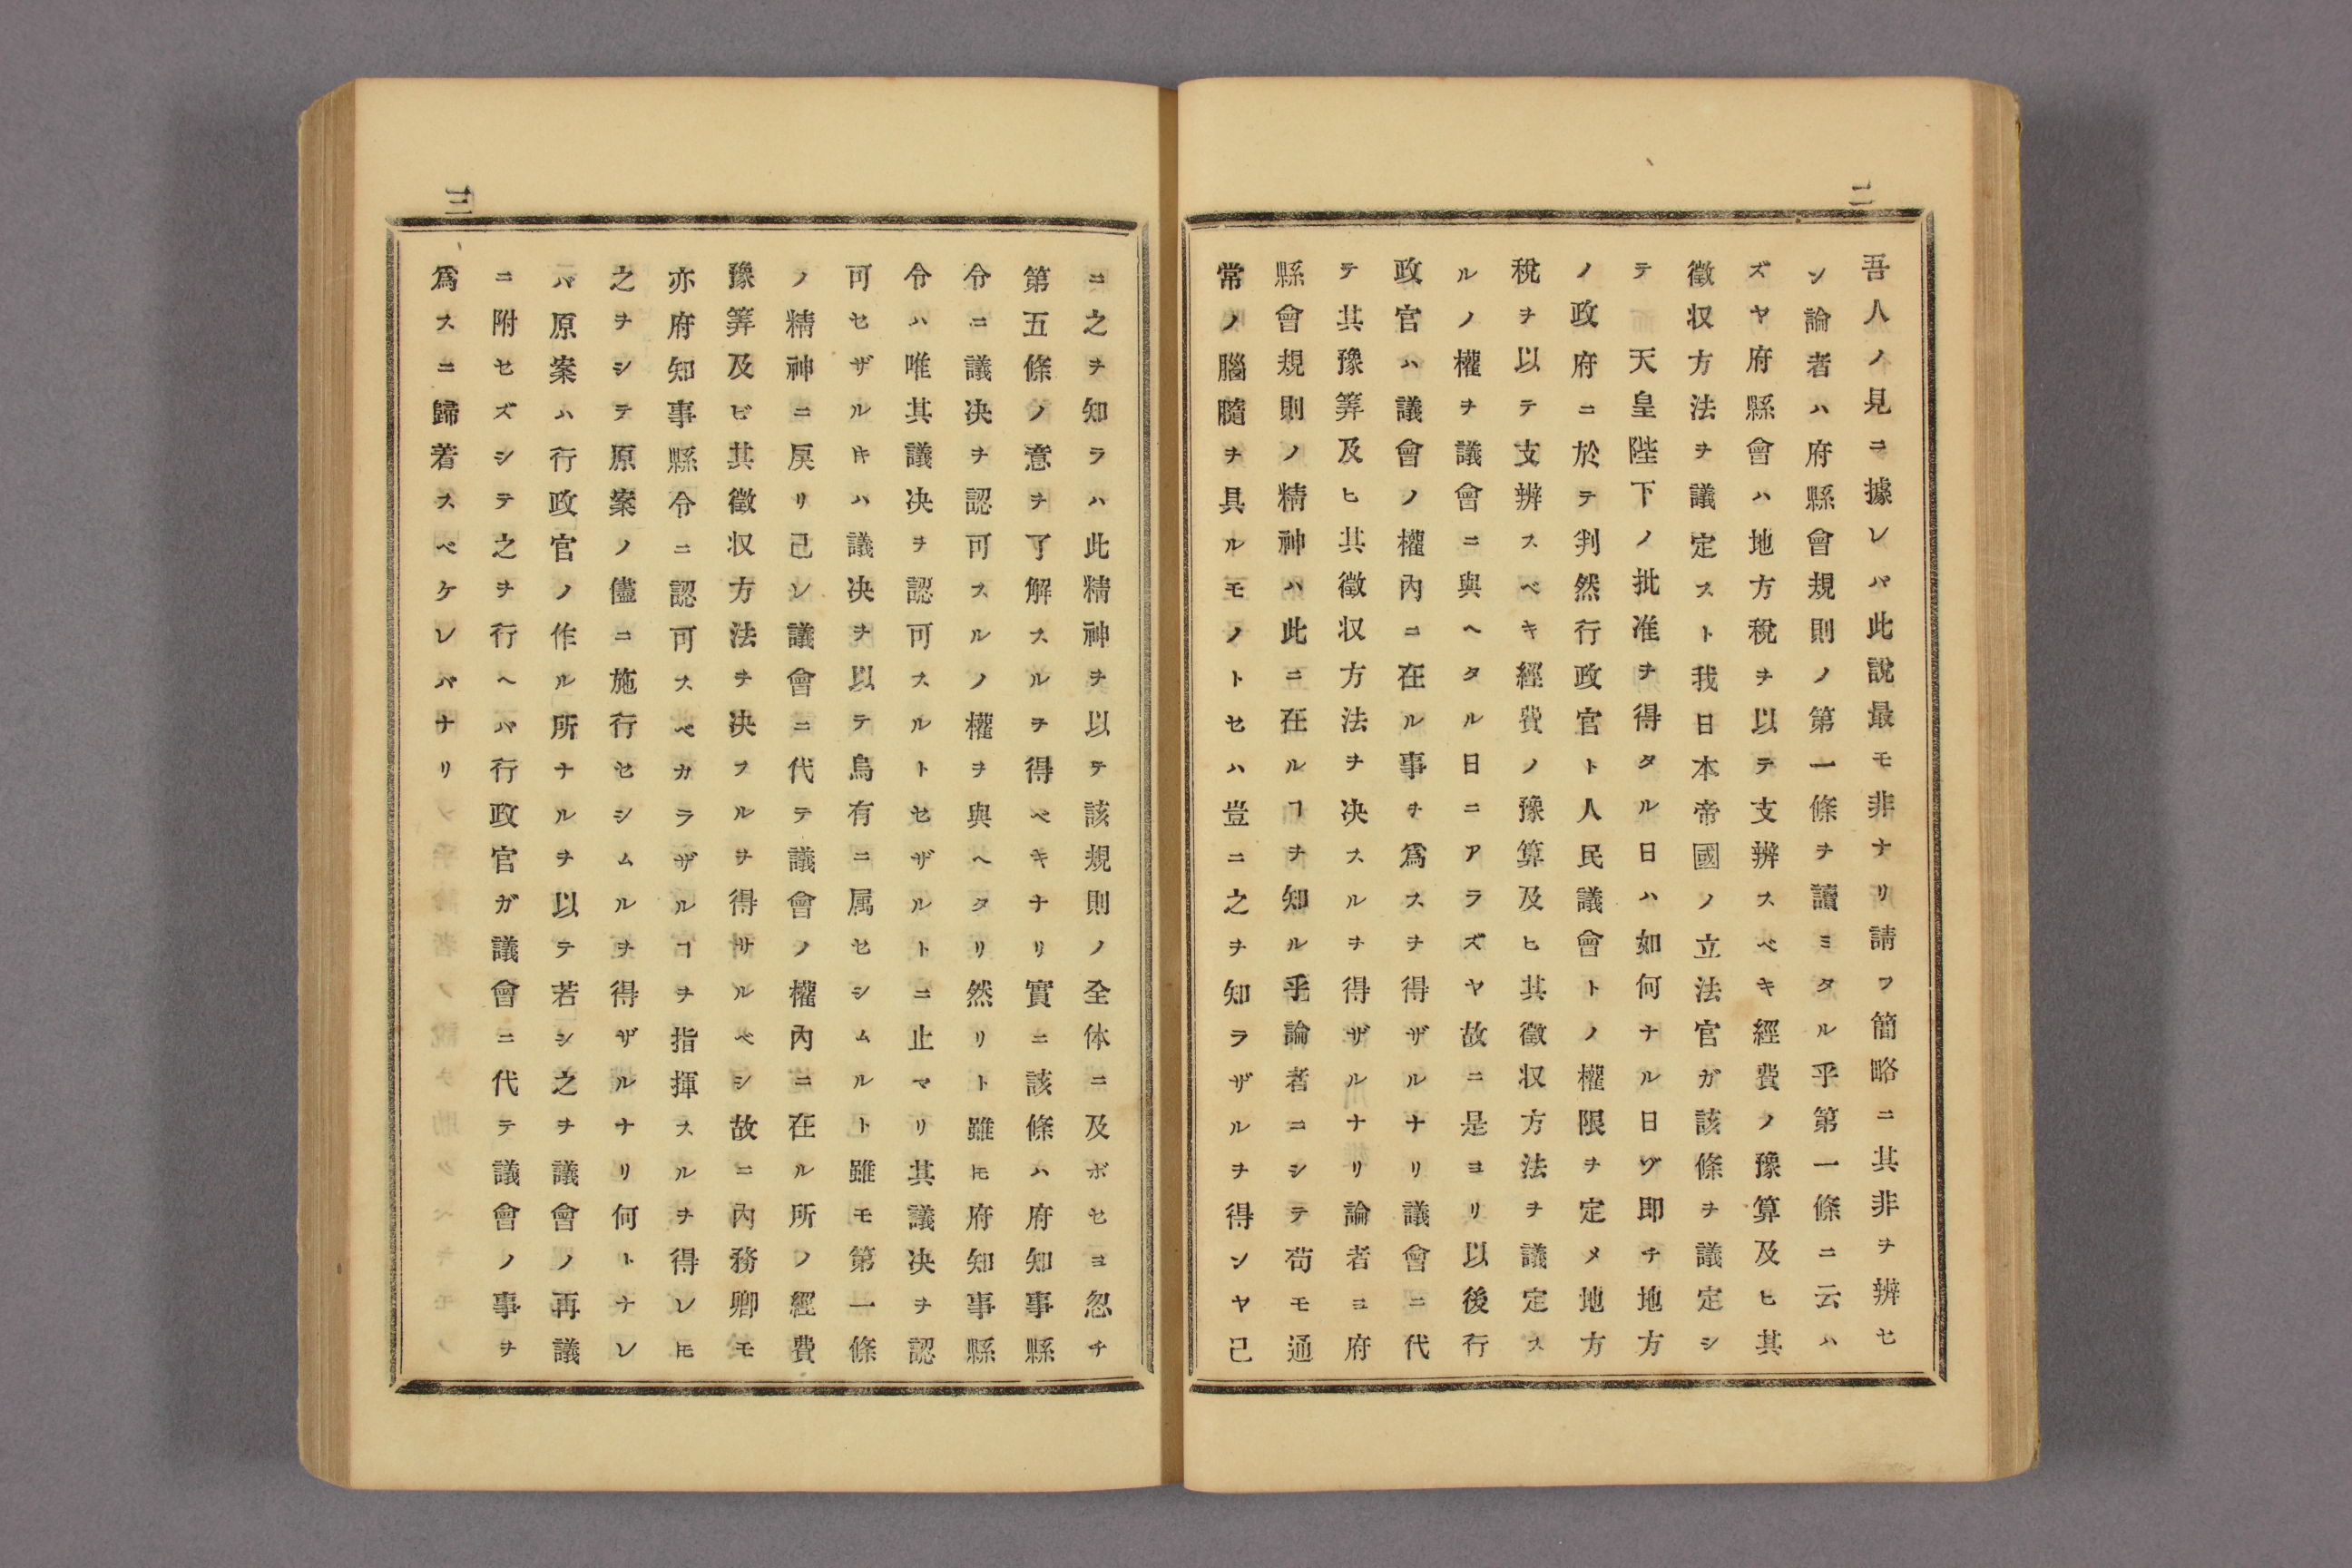 二
吾人ノ見ニ據レバ此說最モ非ナリ請フ簡略ニ其非ヲ辨セ
ン論者ハ府縣會規則ノ第一條ヲ讀ミタル乎第一條ニ云ハ
ズヤ府縣會ハ地方稅ヲ以テ支辨スベキ經費ノ豫算及ヒ其
徵収方法ヲ議定スト我日本帝國ノ立法官ガ該條ヲ議定シ
テ天皇陛下ノ批准ヲ得タル日ハ如何ナル日ゾ即チ地方
ノ政府ニ於テ判然行政官ト人民議會トノ權限ヲ定メ地方
稅ヲ以テ支辨スベキ經費ノ豫算及ヒ其徵収方法ヲ議定ス
ルノ權ヲ議會ニ與ヘタル日ニアラズヤ故ニ是ヨリ以後行
政官ハ議會ノ權內ニ在ル事ヲ爲スヲ得ザルナリ議會ニ代
テ其豫筭及ヒ其徵収方法ヲ决スルヲ得ザルナリ論者ヨ府
縣會規則ノ精神ハ此ニ在ルヿヲ知ル乎論者ニシテ苟モ通
常ノ腦髓ヲ具ルモノトセハ豈ニ之ヲ知ラザルヲ得ンヤ己
三
ニ之ヲ知ラハ此精神ヲ以テ該規則ノ全体ニ及ボセヨ忽チ
第五條ノ意ヲ了解スルヲ得ベキナリ實ニ該條ハ府知事縣
令ニ議决ヲ認可スルノ權ヲ與ヘタリ然リト雖𪜈府知事縣
令ハ唯其議决ヲ認可スルトセザルトニ止マリ其議决ヲ認
可セザルキハ議决ヲ以テ烏有ニ属セシムルト雖モ第一條
ノ精神ニ戻リ己レ議會ニ代テ議會ノ權內ニ在ル所ノ經費
豫筭及ビ其徵収方法ヲ决スルヲ得サルベシ故ニ內務卿モ
亦府知事縣令ニ認可スベカラザルヿヲ指揮スルヲ得レ𪜈
之ヲシテ原案ノ儘ニ施行セシムルヲ得ザルナリ何トナレ
バ原案ハ行政官ノ作ル所ナルヲ以テ若シ之ヲ議會ノ再議
ニ附セズシテ之ヲ行ヘバ行政官ガ議會ニ代テ議會ノ事ヲ
爲スニ歸着スベケレバナリ